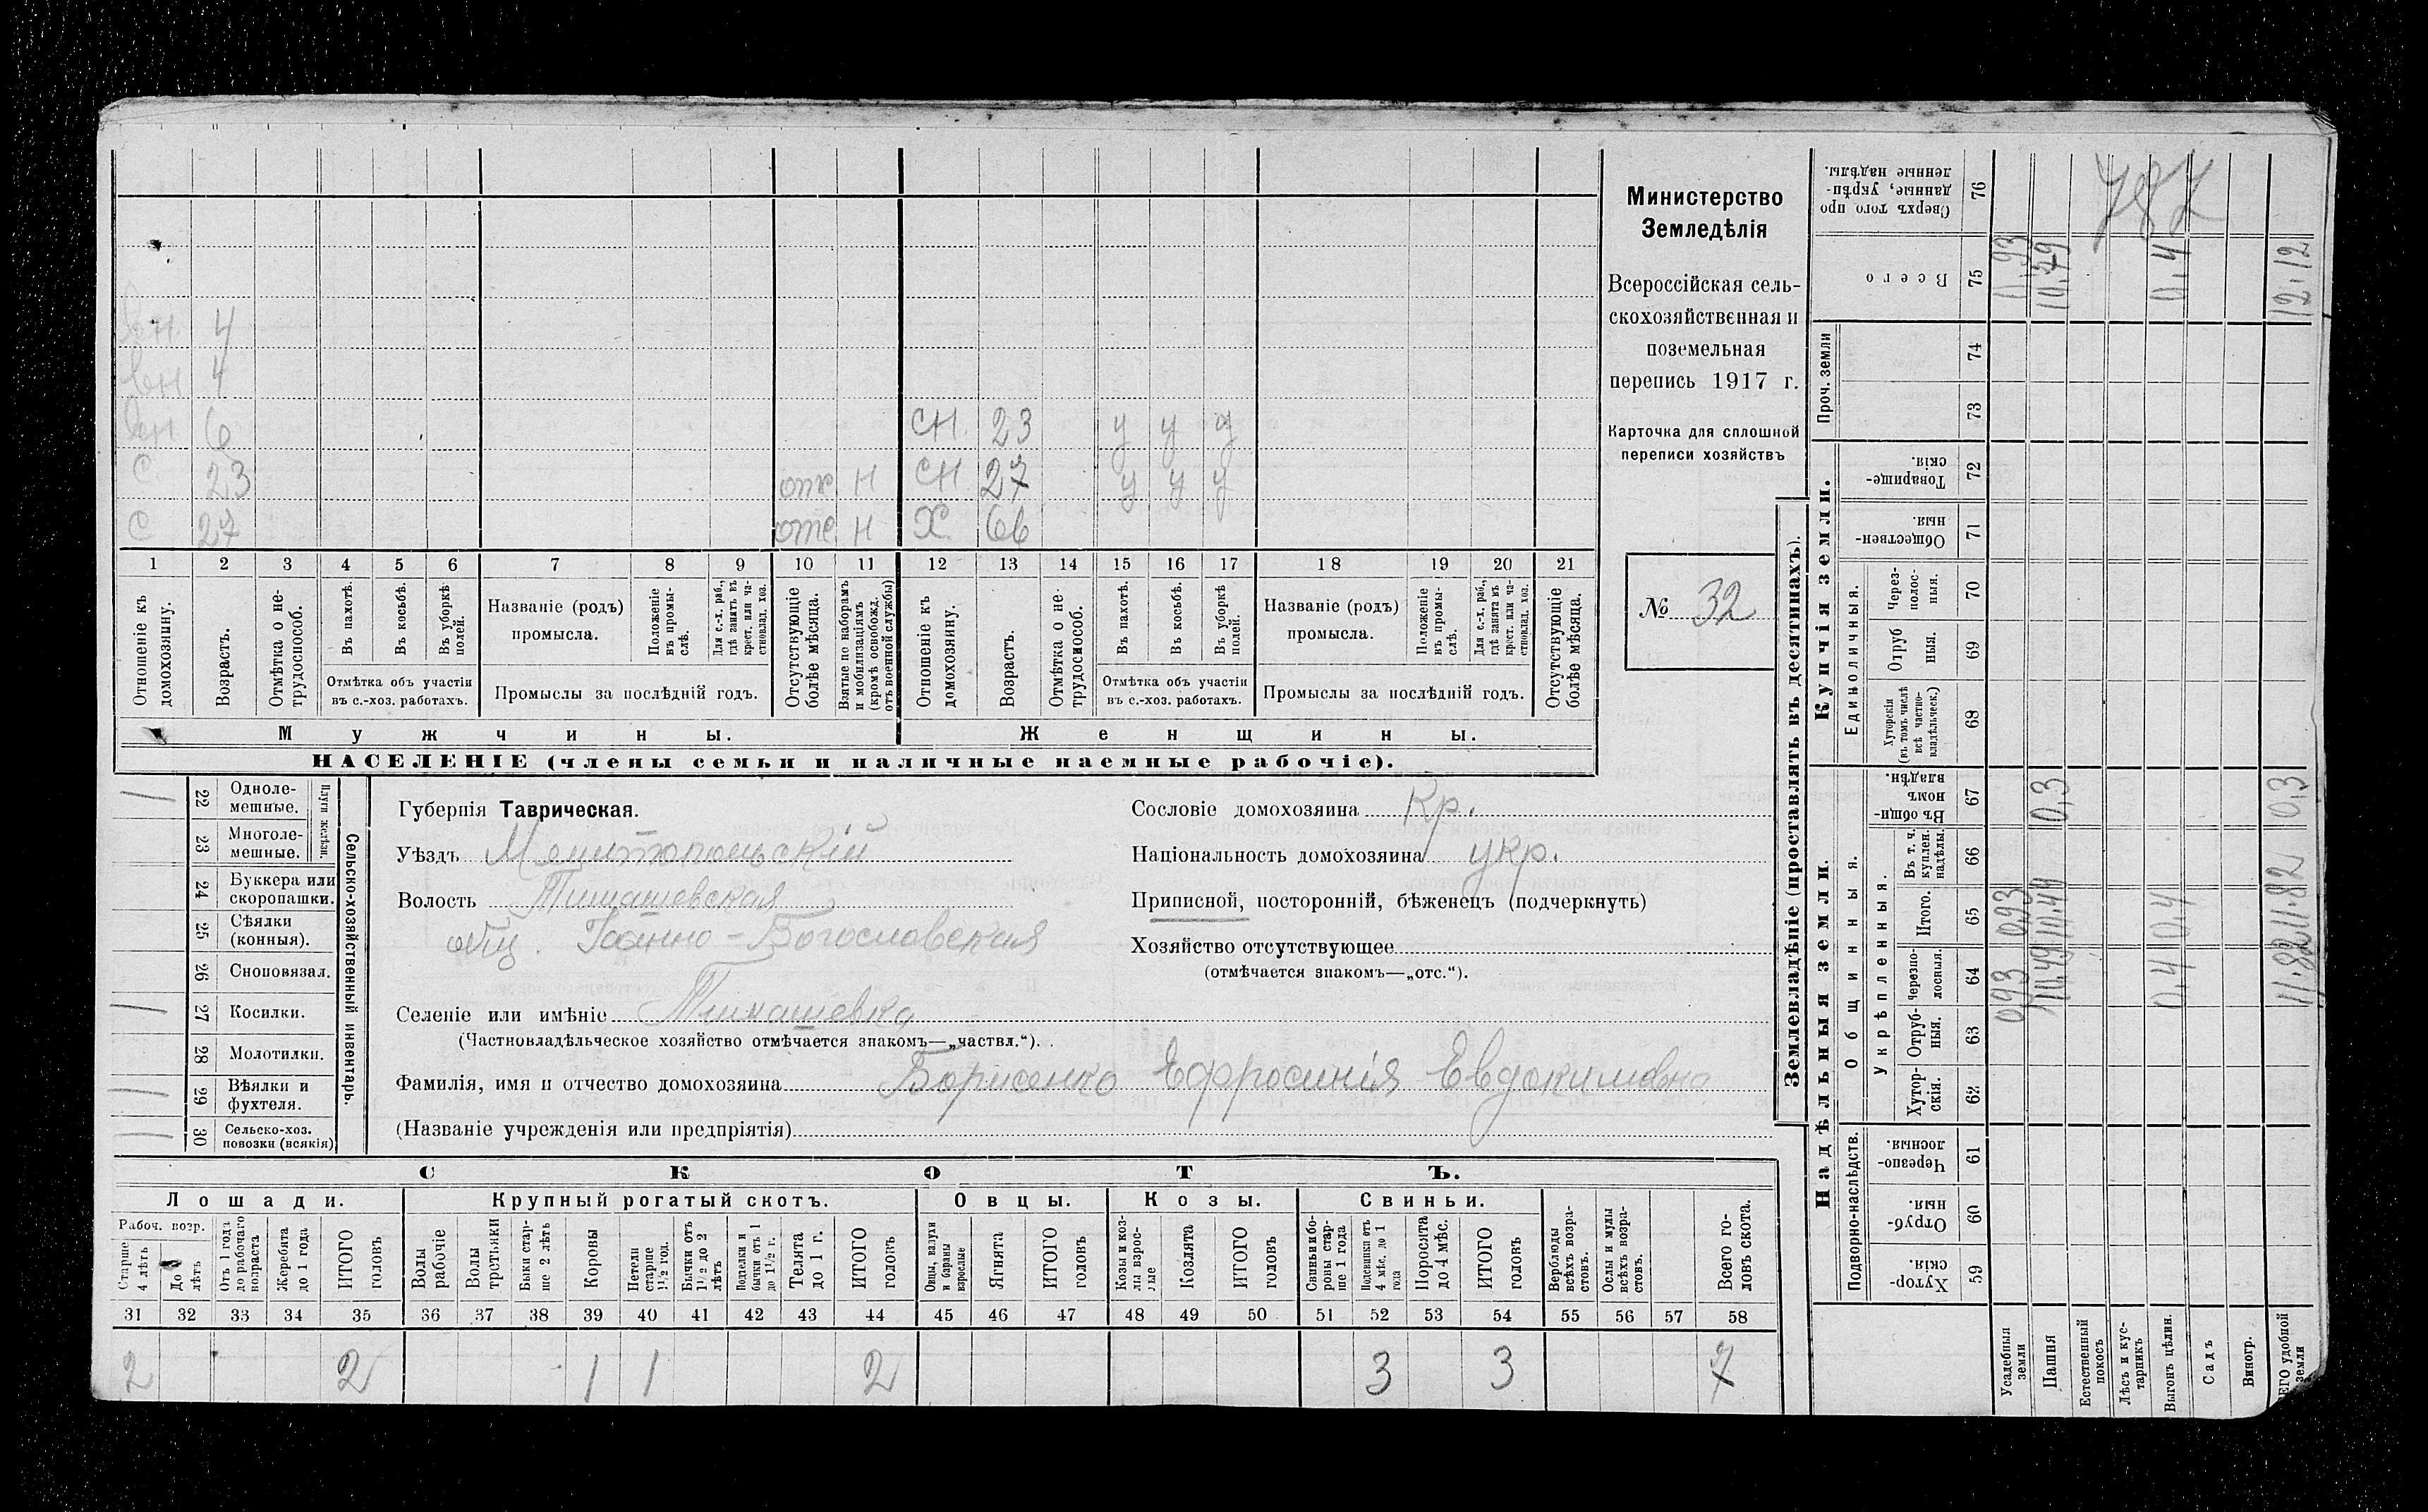 вн. 4
вн 4
вн 6 сн. 23 у у у
с 23 отс Н сн. 27 у у у
с 27 отс Н Х. 66
1 2 3 4 5 6 7 8 9 10 11 12 13 14 15 16 17 18 19 20 21
Отношеніе къ домохозяину.
Возрастъ.
Отмѣтка о не-
трудоспособ.
Въ пахотѣ.
Въ косьбѣ.
Въ уборкѣ полей.
Отмѣтка объ участіи
въ с.-хоз. работахъ.
Названіе (родъ)
промысла.
Положеніе въ промы-
слѣ.
Для с.-х. раб., гдѣ занятъ въ крест. или ча-
стновлад. хоз.
Промыслы за послѣдній годъ.
Отсутствующіе болѣе мѣсяца.
Взятые по наборамъ и мобилизаціямъ (кромѣ освобожд. отъ военной службы)
Отношеніе къ домохозяину.
Возрастъ.
Отмѣтка о не-
трудоспособ.
Въ пахотѣ.
Въ косьбѣ.
Въ уборкѣ полей.
Отмѣтка объ участіи
въ с.-хоз. работахъ.
Названіе (родъ)
промысла.
Положеніе въ промы-
слѣ.
Для с.-х. раб., гдѣ занята въ крест. или ча-
стновлад. хоз.
Промыслы за послѣдній годъ.
Отсутствующіе болѣе мѣсяца.
Мужчины. Женщины.
НАСЕЛЕНІЕ (члены семьи и наличные наемные рабочіе).
Министерство
Земледѣлія
Всероссійская сель-
скохозяйственная и
поземельная
перепись 1917 г.
Карточка для сплошной
переписи хозяйствъ
№ 32
22 Одноле-
мешные.
23 Многоле-
мешные.
Плуги желѣзн.
24 Буккера или
скоропашки.
25 Сѣялки
(конныя).
26 Сноповязал.
27 Косилки.
28 Молотилки.
29 Вѣялки и
фухтеля.
30 Сельско-хоз.
повозки (всякія)
Сельско-хозяйственный инвентарь.
Губернія Таврическая.
Уѣздъ Мелитопольскій
Волость Тимашевская
общ. Іоанно-Богословская
Селеніе или имѣніе Тимашевка
(Частновладѣльческое хозяйство отмѣчается знакомъ—„частвл.“).
Фамилія, имя и отчество домохозяина Борисенко Ефросинія Евдокимовна
(Названіе учрежденія или предпріятія)
Сословіе домохозяина Кр.
Національность домохозяина укр.
Приписной, посторонній, бѣженецъ (подчеркнуть)
Хозяйство отсутствующее
(отмѣчается знакомъ—„отс.“).
СКОТЪ.
Лошади. Крупный рогатый скотъ. Овцы. Козы. Свиньи.
Рабоч. возр.
Старше 4 лѣтъ
До лѣтъ
Отъ 1 года до рабочаго возраста
Жеребята до 1 года
ИТОГО головъ
Волы рабочіе
Волы третьяки
Быки стар-
ше 2 лѣтъ
Коровы
Нетели старше 1½ год.
Бычки отъ 1½ до 2 лѣтъ
Подтелки и бычки отъ 1 до 1½ г.
Телята до 1 г.
ИТОГО головъ
Овцы, валухи и бараны взрослые
Ягнята
ИТОГО головъ
Козы и коз-
лы взрос-
лые
Козлята
ИТОГО головъ
Свиньи и бо-
ровы стар-
ше 1 года
Подсвинки отъ 4 мѣс. до 1 года
Поросята до 4 мѣс.
ИТОГО головъ
Верблюды всѣхъ возра-
стовъ.
Ослы и мулы всѣхъ возра-
стовъ.
Всего го-
ловъ скота.
31 32 33 34 35 36 37 38 39 40 41 42 43 44 45 46 47 48 49 50 51 52 53 54 55 56 57 58
2 2 1 1 2 3 3 7
Землевладѣніе (проставлять въ десятинахъ).
787
Сверхъ того про
данные, укрѣп-
ленные надѣлы. 76
Всего 75 0,93 10,79 0,4 12,12
Проч. земли 74 73
Купчія земли.
Товарище-
скія. 72
Обществен-
ныя. 71
Единоличныя.
Через-
полос-
ныя. 70
Отруб
ныя. 69
Хуторскія (въ томъ числѣ всѣ частно-
владѣльческ.) 68
Надѣльныя земли.
Общинныя.
Въ общи-
номъ владѣн. 67 0,3 0,3
Укрѣпленныя.
Въ т. ч. куплен. надѣлы. 66
Итого. 65 0,93 10,49 0,4 11,82
Черезпо-
лосныя. 64 0,93 10,49 0,4 11,82
Отруб-
ныя. 63
Хутор-
скія. 62
Подворно-наслѣдств.
Черезпо-
лосныя. 61
Отруб-
ныя. 60
Хутор-
скія. 59
Усадебныя земли
Пашня
Естественный покосъ
Лѣсъ и кус-
тарникъ
Выгонъ цѣлин.
Садъ
Виногр.
ЕГО удобной земли